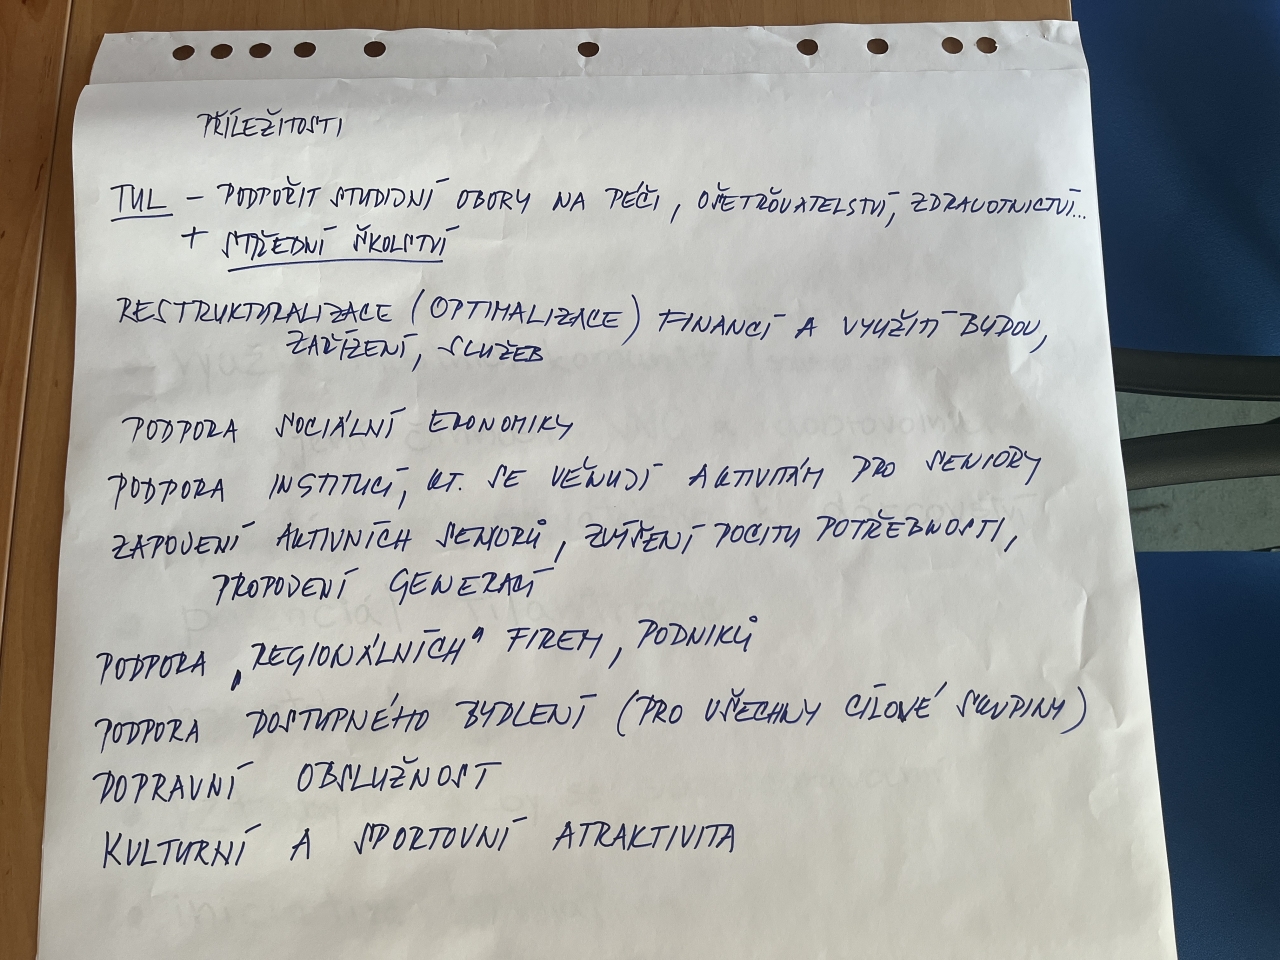 PŘÍLEŽITOSTI
TUL - PODPOŘIT STUDIJNÍ OBORY NA PÉČI, OŠETŘOVATELSTVÍ, ZDRAVOTNICTVÍ...
+ STŘEDNÍ ŠKOLSTVÍ
RESTRUKTURALIZACE (OPTIMALIZACE) FINANCÍ A VYUŽITÍ BUDOV,
ZAŘÍZENÍ, SLUŽEB
PODPORA SOCIÁLNÍ EKONOMIKY
PODPORA INSTITUCÍ, KT. SE VĚNUJÍ AKTIVITÁM PRO SENIORY
ZAPOJENÍ AKTIVNÍCH SENIORŮ, ZVÝŠENÍ POCITU POTŘEBNOSTI,
PROPOJENÍ GENERACÍ
PODPORA „REGIONÁLNÍCH" FIREM, PODNIKŮ
PODPORA DOSTUPNÉHO BYDLENÍ (PRO VŠECHNY CÍLOVÉ SKUPINY)
DOPRAVNÍ OBSLUŽNOST
KULTURNÍ A SPORTOVNÍ ATRAKTIVITA